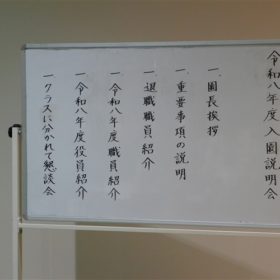 令和八年度入園説明会
一.園長挨拶
一.重要事項の説明
一.退職職員紹介
一.令和八年度職員紹介
一.令和八年度役員紹介
一.クラスに分かれて懇談会